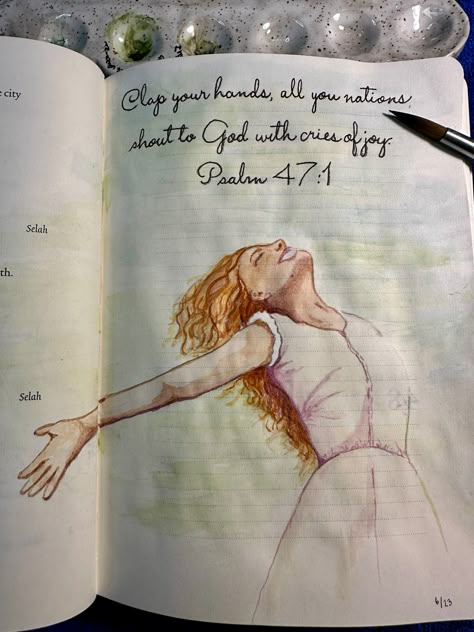 e city
Selah
th.
Selah
Clap your hands, all you nations,
shout to God with cries of joy.
Psalm 47:1
6/23